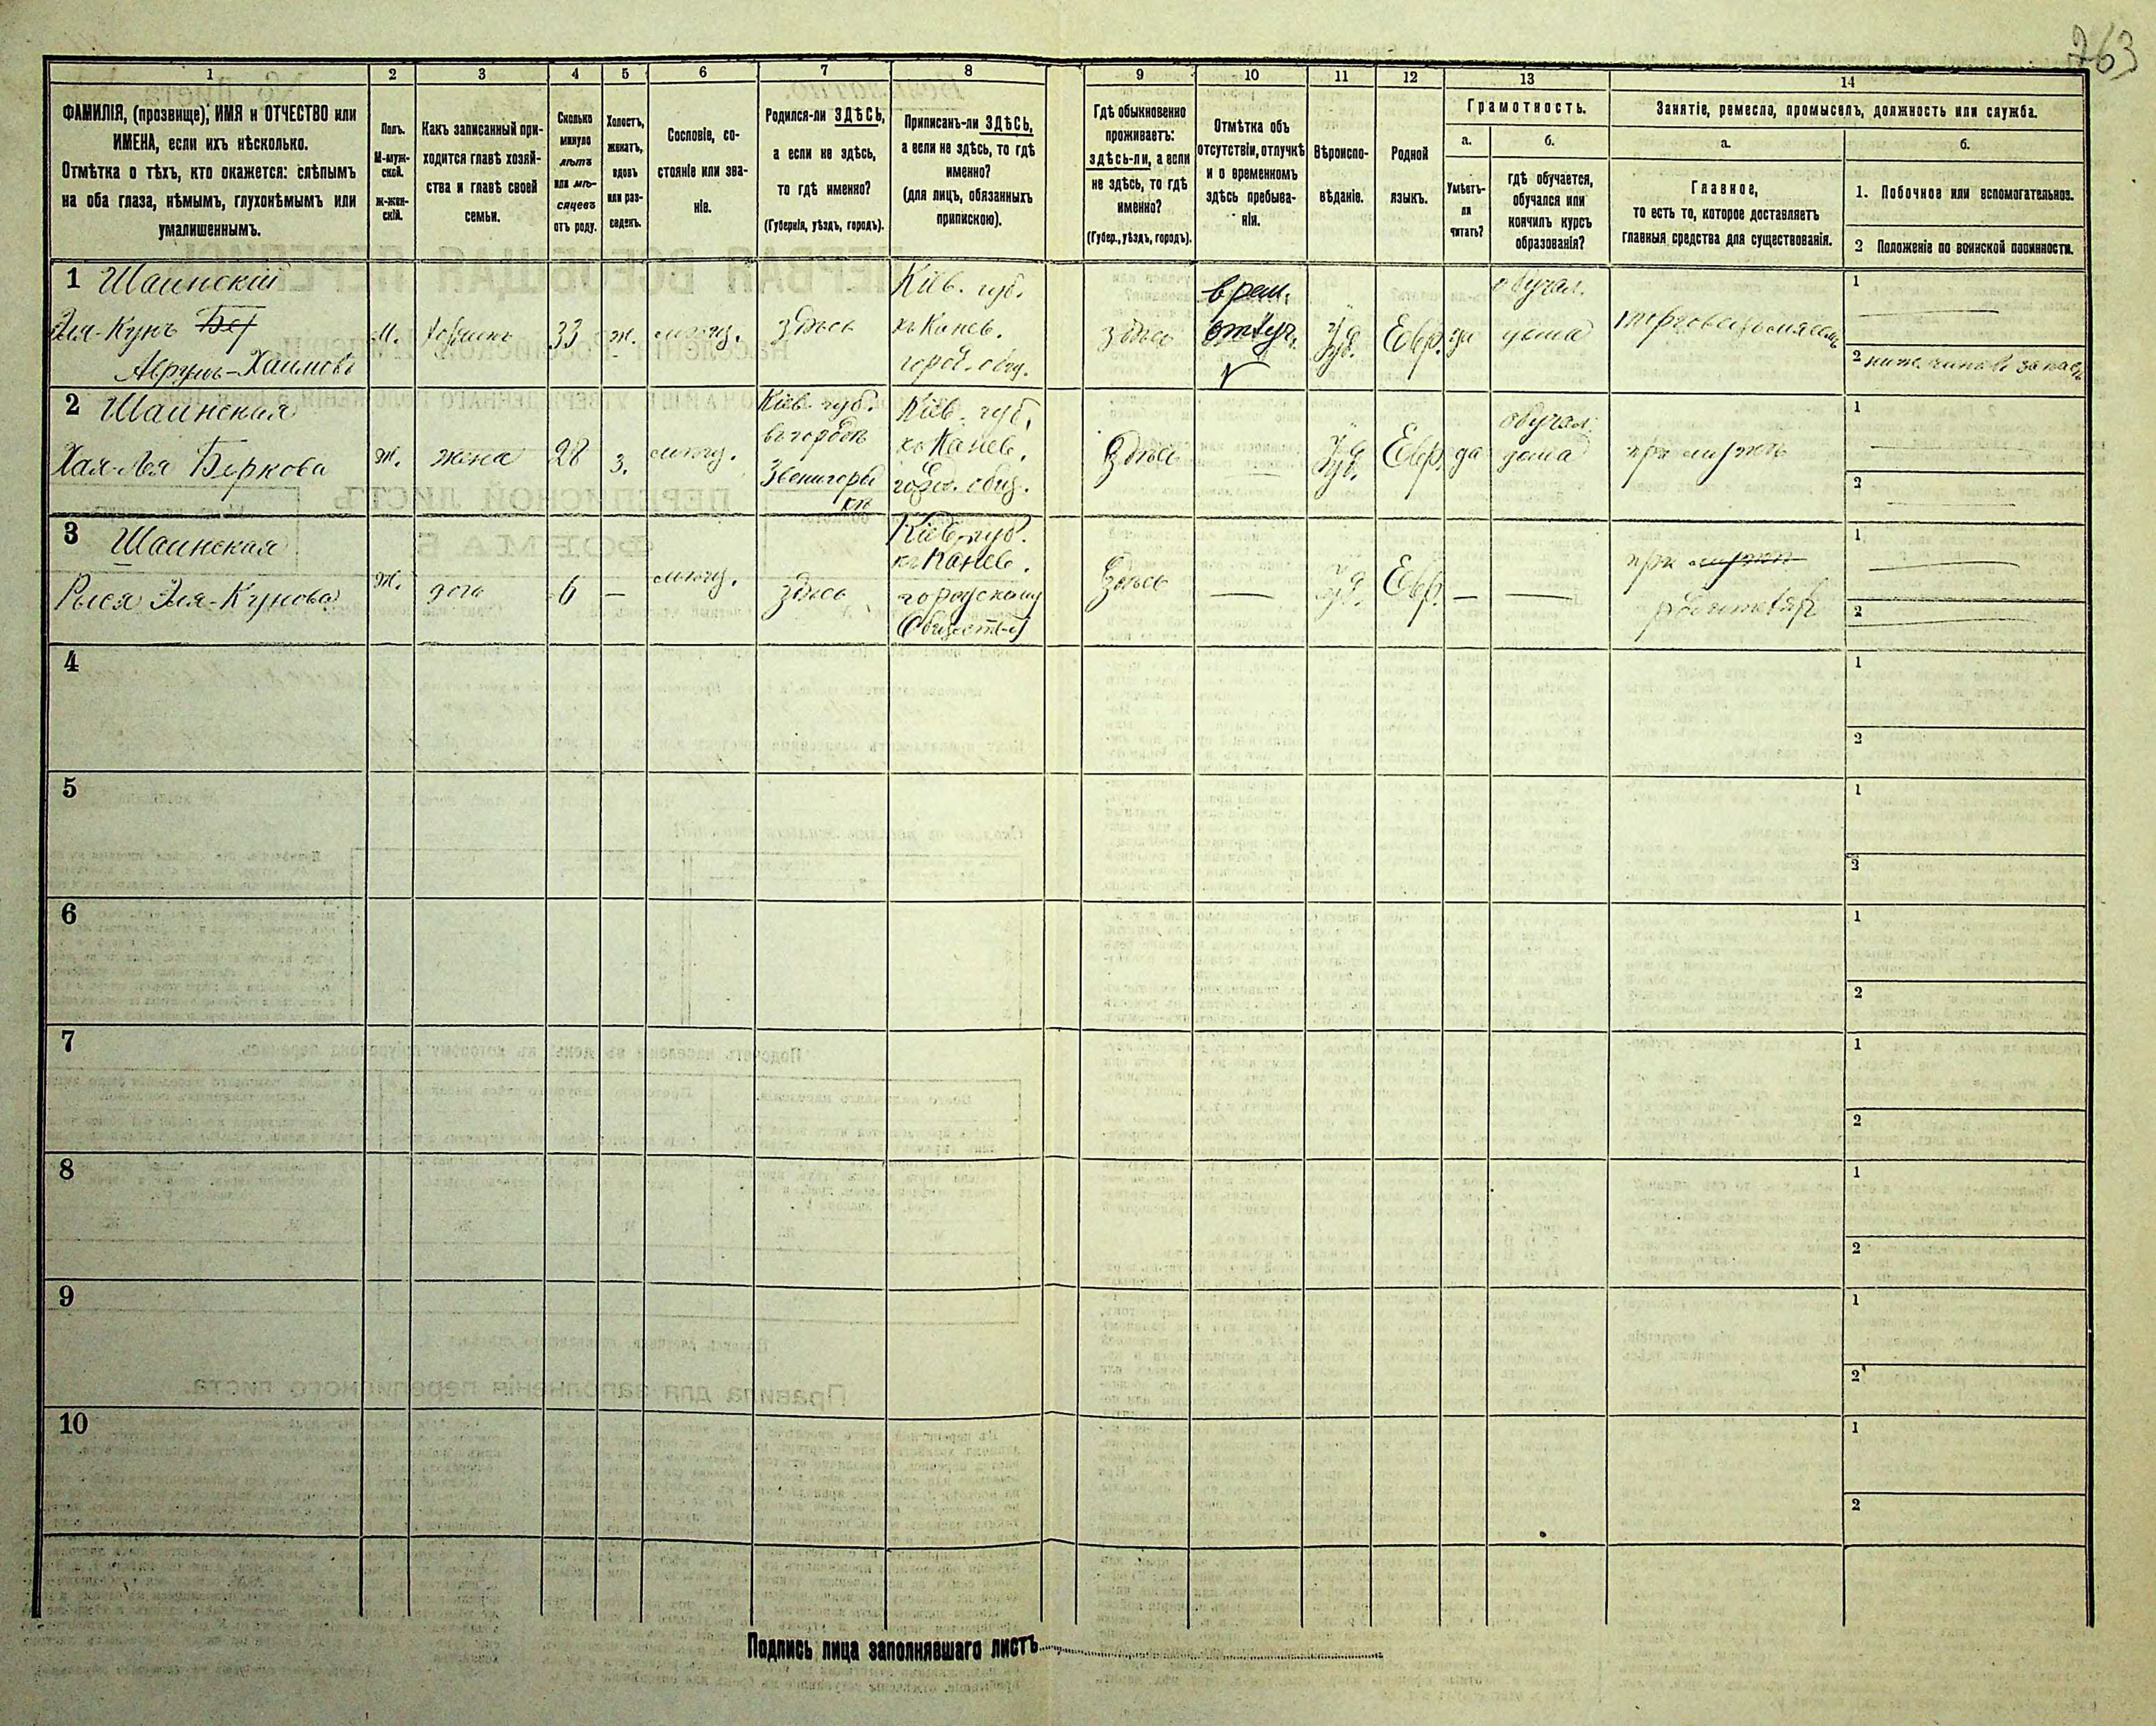 263
1 2 3 4 5 6 7 8 9 10 11 12 13 14
ФАМИЛІЯ, (прозвище), ИМЯ и ОТЧЕСТВО или
ИМЕНА, если ихъ нѣсколько.
Отмѣтка о тѣхъ, кто окажется: слѣпымъ
на оба глаза, нѣмымъ, глухонѣмымъ или
умалишеннымъ.
Полъ.
М-муж-
ской.
Ж-жен-
скій.
Какъ записанный при-
ходится главѣ хозяй-
ства и главѣ своей
семьи.
Сколько
минуло
лѣтъ
или мѣ-
сяцевъ
отъ роду.
Холостъ,
женатъ,
вдовъ
или раз-
веденъ.
Сословіе, со-
стояніе или зва-
ніе.
Родился-ли ЗДѢСЬ,
а если не здѣсь,
то гдѣ именно?
(Губернія, уѣздъ, городъ).
Приписанъ-ли ЗДѢСЬ,
а если не здѣсь, то гдѣ
именно?
(для лицъ, обязанныхъ
припискою).
Гдѣ обыкновенно
проживаетъ:
здѣсь-ли, а если
не здѣсь, то гдѣ
именно?
(Губер., уѣздъ, городъ).
Отмѣтка объ
отсутствіи, отлучкѣ
и о временномъ
здѣсь пребыва-
ніи.
Вѣроиспо-
вѣданіе.
Родной
языкъ.
Грамотность.
а.
Умѣетъ-
ли
читать?
б.
гдѣ обучается,
обучался или
кончилъ курсъ
образованія?
Занятіе, ремесло, промыселъ, должность или служба.
а.
Главное,
то есть то, которое доставляетъ
главныя средства для существованія.
б.
1. Побочное или вспомогательное.
2 Положеніе по воинской повинности.
1 Шаинскій
Эля-Кунъ
Аврумъ-Хаимовъ
М.
33
ж.
здѣсь
Кіев. губ.
къ Канев.
город. общ.
здѣсь
врем.
отлуч.
Іуд.
Евр.
да
обучал.
дома
1
2 нижн. чиновъ запаса
2 Шаинская
Хая-Лея Беркова
Ж.
жена
28
з.
Кіев. губ.
въ городѣ
Звенигород
кѣ
Кіев. губ.
къ Канев.
город. общ.
Здѣсь
—
Іуд.
Евр.
да
обучал.
дома
при мужѣ
1
2
3 Шаинская
Рыся Эля-Кунова
Ж.
дочь
6
—
здѣсь
Кіев. губ.
къ Канев.
городскому
Обществу
Здѣсь
—
Іуд.
Евр.
—
—
при мужѣ
родителяхъ
1
2
4
1
2
5
1
2
6
1
2
7
1
2
8
1
2
9
1
2
10
1
2
Подпись лица заполнявшаго листъ